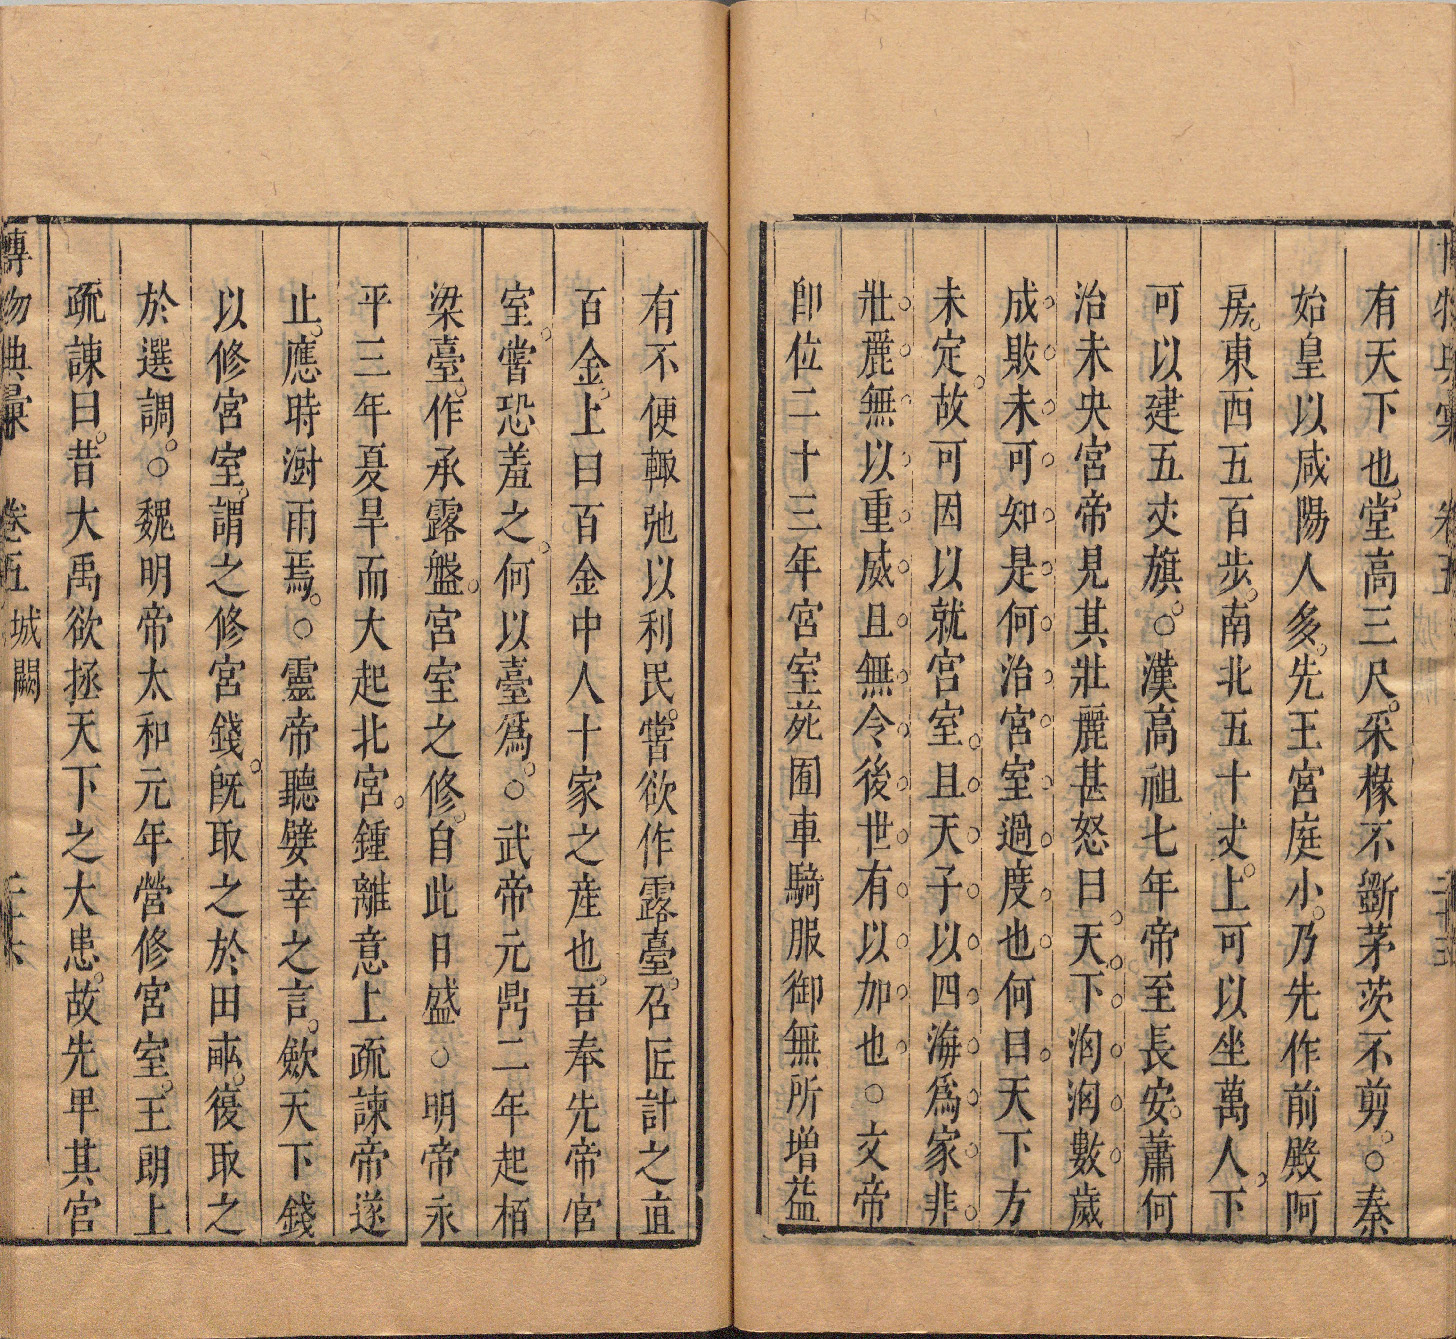 有天下也堂高三尺采椽不斵茅茨不剪○秦
始皇以咸陽人多先王宮庭小乃先作前殿阿
房東西五百步南北五十丈上可以坐萬人下
可以建五丈旗○漢高祖七年帝至長安蕭何
治未央宮帝見其壯麗甚怒曰天下洶洶數歲
成敗未可知是何治宮室過度也何曰天下方
未定故可因以就宮室且天子以四海爲家非
壯麗無以重威且無令後世有以加也○文帝
即位二十三年宮室苑囿車騎服御無所增益
有不便輙弛以利民嘗欲作露臺召匠計之直
百金上曰百金中人十家之産也吾奉先帝宮
室嘗恐羞之何以臺爲○武帝元鼎二年起栢
梁臺作承露盤宮室之修自此日盛○明帝永
平三年夏旱而大起北宮鍾離意上疏諫帝遂
止應時澍雨焉○靈帝聽嬖幸之言歛天下錢
以修宮室謂之修宮錢旣取之於田畝復取之
於選調○魏明帝太和元年營修宮室王朗上
疏諫曰昔大禹欲拯天下之大患故先卑其宮
博物典彙 卷五 城闕 二十六